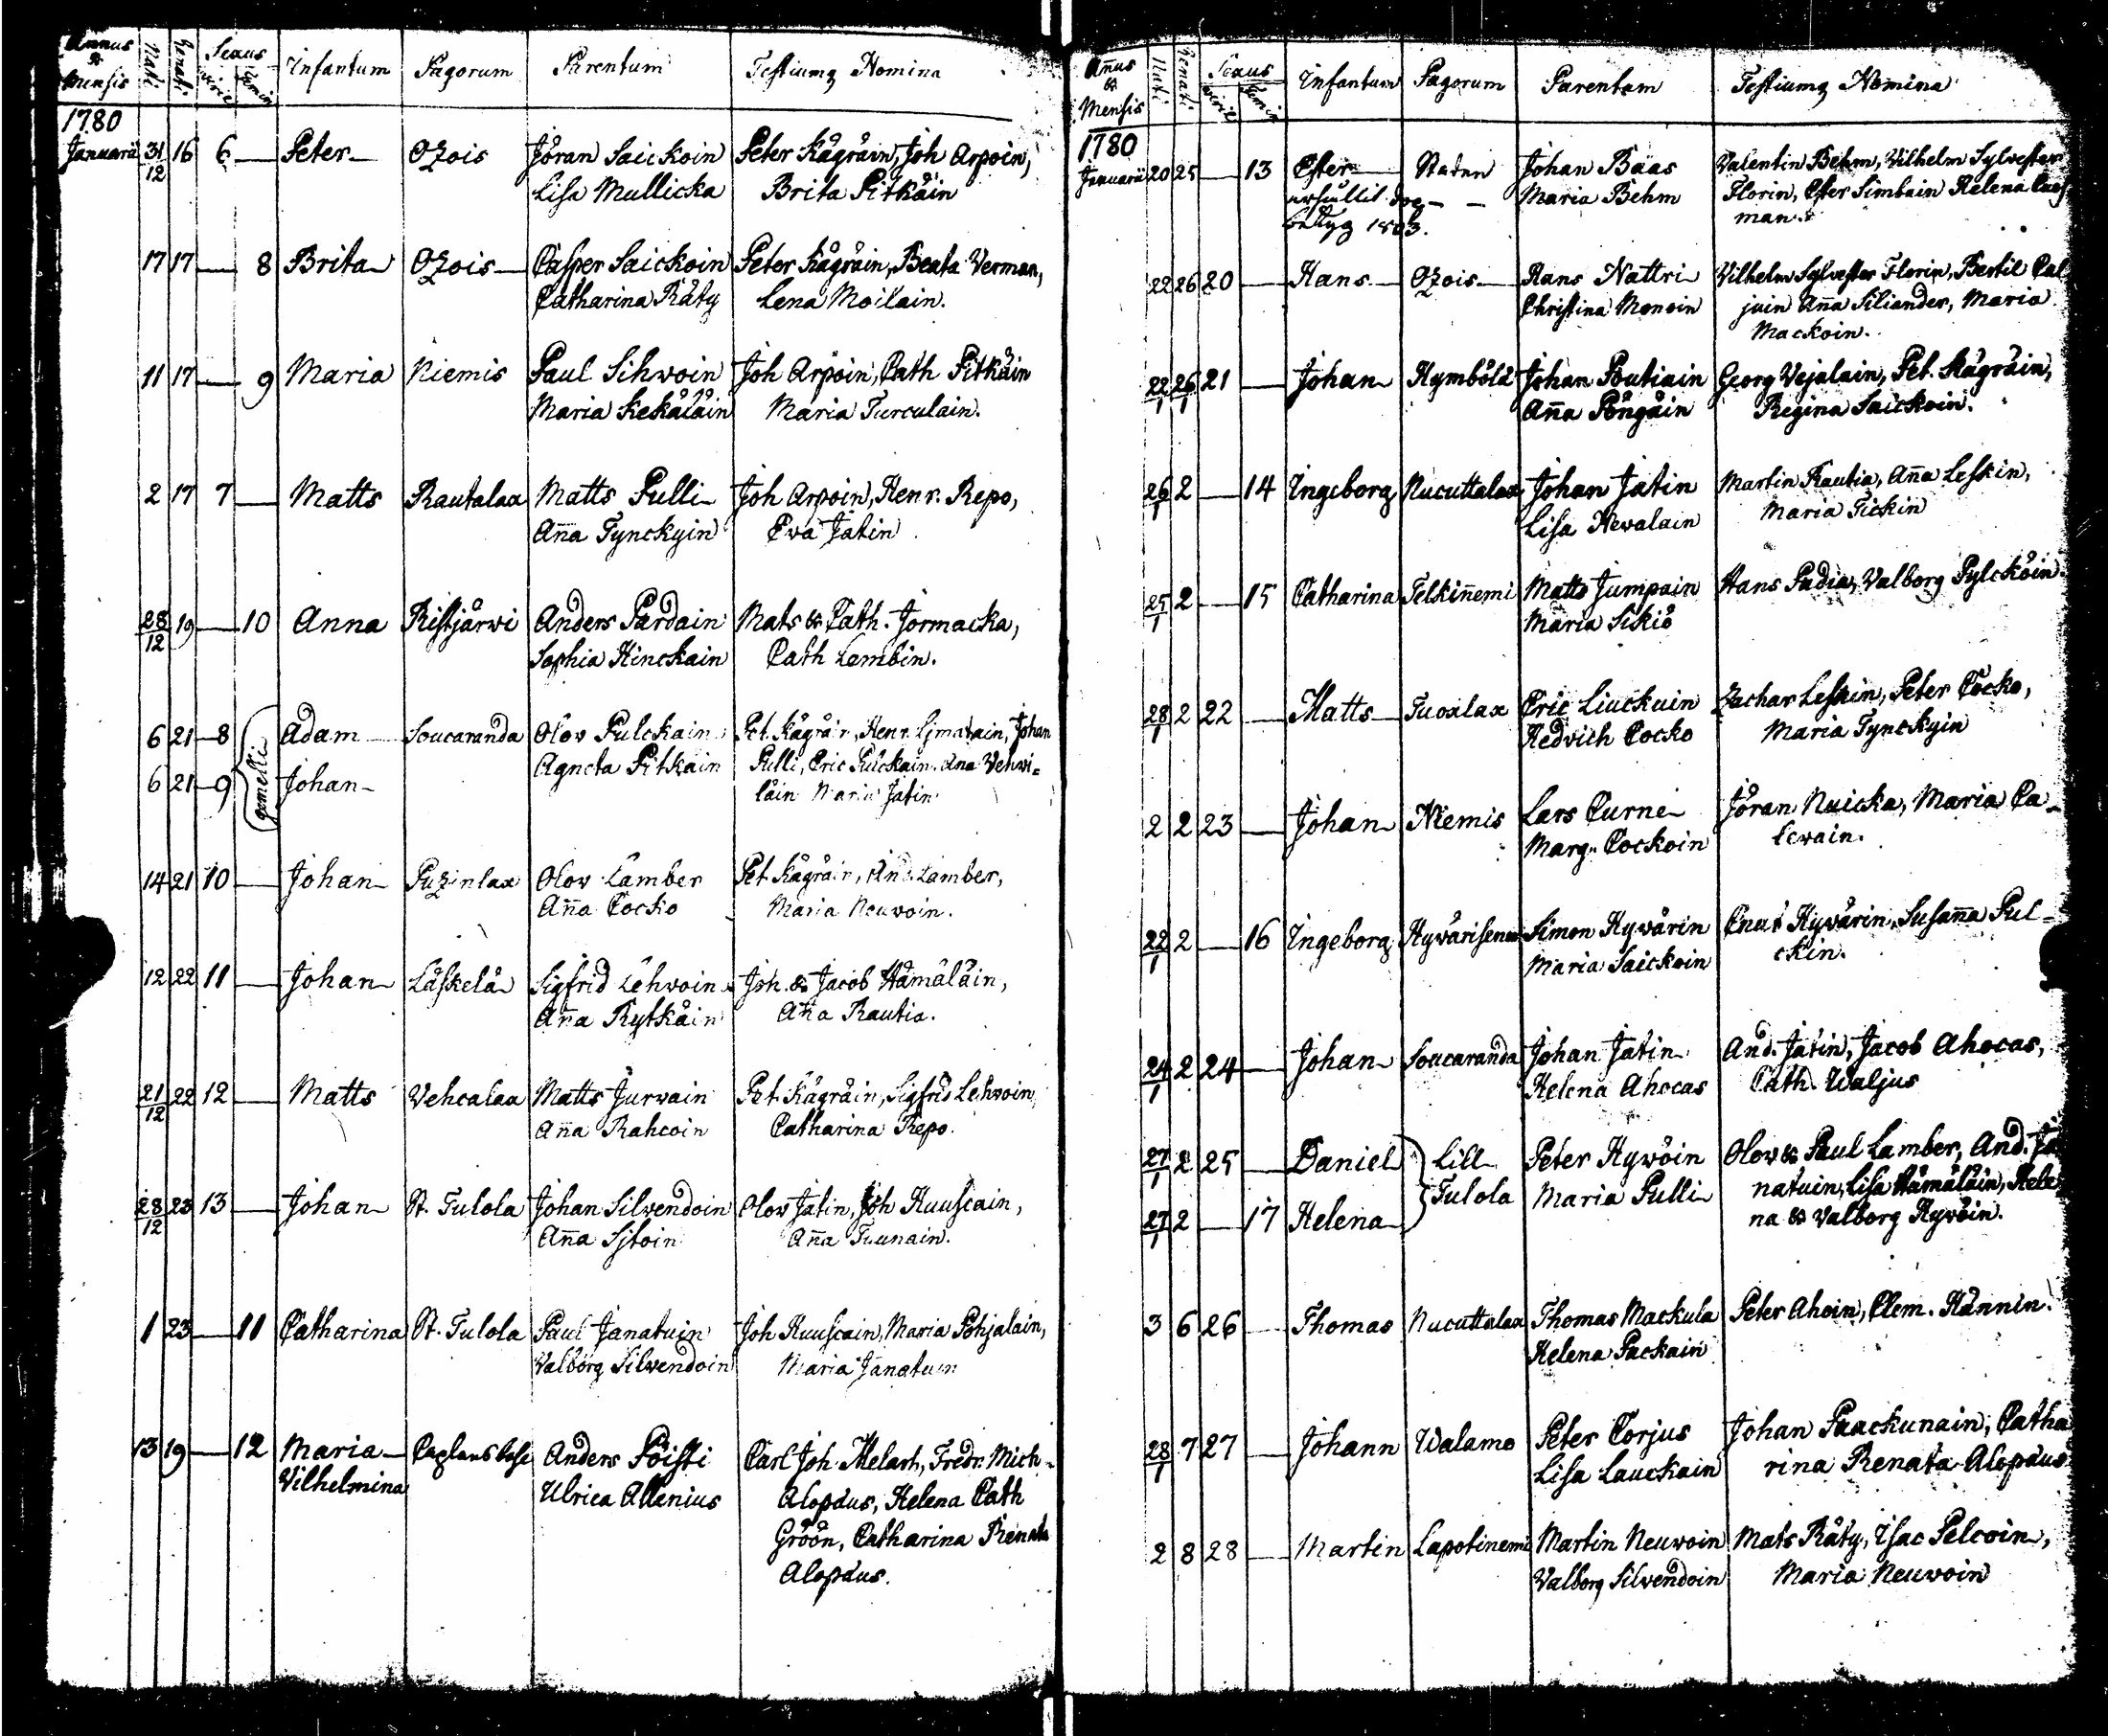 Annus & Mensis Nati Renati Sexus Virile Femin Infantum Pagorum Parentum Testiumq Nomina
1780
Januarii 31/12 16 6 — Peter Ozois Jöran Saickoin Peter Kägräin, Joh Arpoin,
Lisa Mullicka Brita Pitkäin
17 17 — 8 Brita Ozois Casper Saickoin Peter Kägräin, Beata Verman,
Catharina Räty Lena Moilain.
11 17 — 9 Maria Niemis Paul Sihvoin Joh Arpoin, Cath Pitkäin
Maria Kekäläin Maria Turculain.
2 17 7 — Matts Rautalax Matts Pulli Joh Arpoin, Henr. Repo,
Aña Tynckyin Eva Jatin
28/12 19 — 10 Anna Ristjärwi Anders Pardain Mats & Cath. Jormacka,
Sophia Hinckain Cath Lembin.
6 21 8 gemelli Adam Soucaranda Olov Pulckain Pet. Kägräin, Henr. Ijmatain, Johan
Agneta Pitkäin Pulli, Eric Pulckain. Ana Vehvi=
6 21 9 Johan läin Maria Jatin
14 21 10 — Johan Puzinlax Olov Lamber Pet. Kägräin, And. Lamber,
Aña Cocko Maria Neuvoin.
12 22 11 — Johan Läskelä Sigfrid Lehvoin Joh. & Jacob Hämäläin,
Aña Rytkäin Aña Rautia.
21/12 22 12 — Matts Vehcalax Matts Jurvain Pet. Kägräin, Sigfrid Lehvoin,
Aña Rahcoin Catharina Repo.
28/12 23 13 — Johan St. Tulola Johan Silvendoin Olov Jatin, Joh Kuuscain,
Aña Sjtoin Aña Tuunain.
1 23 — 11 Catharina St. Tulola Paul Janatuin Joh Kuuscain, Maria Pohjalain,
Valborg Silvendoin Maria Janatuin
13 19 — 12 Maria Anders Pöisti Carl Joh. Melart, Fredr. Mich
Vilhelmina Ulrica Allenius Alopæus, Helena Cath
Gröön, Catharina Renata
Alopæus.
Añus & Mensis Nati Renati Sexus Virile Femin Infantum Pagorum Parentum Testiumq Nomina
1780
Januarii 20 25 — 13 Ester Staden Johan Baas Valentin Behm, Vilhelm Sylvester
Maria Behm Florin, Ester Simbain Helena
betyg 1803. man.
22 26 20 — Hans Ozois Hans Nattri Vilhelm Sylvester Florin, Bertil Cal
Christina Monoin juin Aña Siliander, Maria
Mackoin.
22/1 26/1 21 — Johan Kymbölä Johan Poutiain Georg Vejalain, Pet. Kägräin,
Aña Pöngäin Regina Saickoin.
26/1 2 — 14 Ingeborg Nucuttalax Johan Jatin Martin Rautia, Aña Leskin,
Lisa Nevalain Maria Tickin
25/1 2 — 15 Catharina Telkiñemi Matts Jumpain Hans Padia, Valborg Pylcköin.
Maria Sikiö
28/1 2 22 — Matts Tuoxlax Eric Liuckuin Zachar Leskin, Peter Cocko,
Hedvich Cocko Maria Tynckyin
2 2 23 — Johan Niemis Lars Curne Jöran Nuicka, Maria Ca
Marg. Cockoin levain.
22/1 2 — 16 Ingeborg Simon Hyvärin Cnut Hyvärin, Susaña Pul-
Maria Saickoin ckin.
24/1 2 24 — Johan Soucaranda Johan Jatin And. Jatin, Jacob Ahocas,
Helena Ahocas Cath. Waljus
27/1 2 25 — Daniel Lill Peter Hyvöin Olov & Paul Lamber, And. Ja
Tulola Maria Pulli natuin, Lisa Hämäläin, Hele
27/1 2 — 17 Helena na & Valborg Hyvöin.
3 6 26 — Thomas Nucuttalax Thomas Mackula Peter Ahoin, Clem. Hännin.
Helena Packain
28/1 7 27 — Johann Walamo Peter Corjus Johan Paackunain, Catha
Lisa Lauckain rina Renata Alopæus
2 8 28 — Martin Lapotinemi Martin Neuvoin Mats Räty, Isac Pelcoin,
Valborg Silvendoin Maria Neuvoin